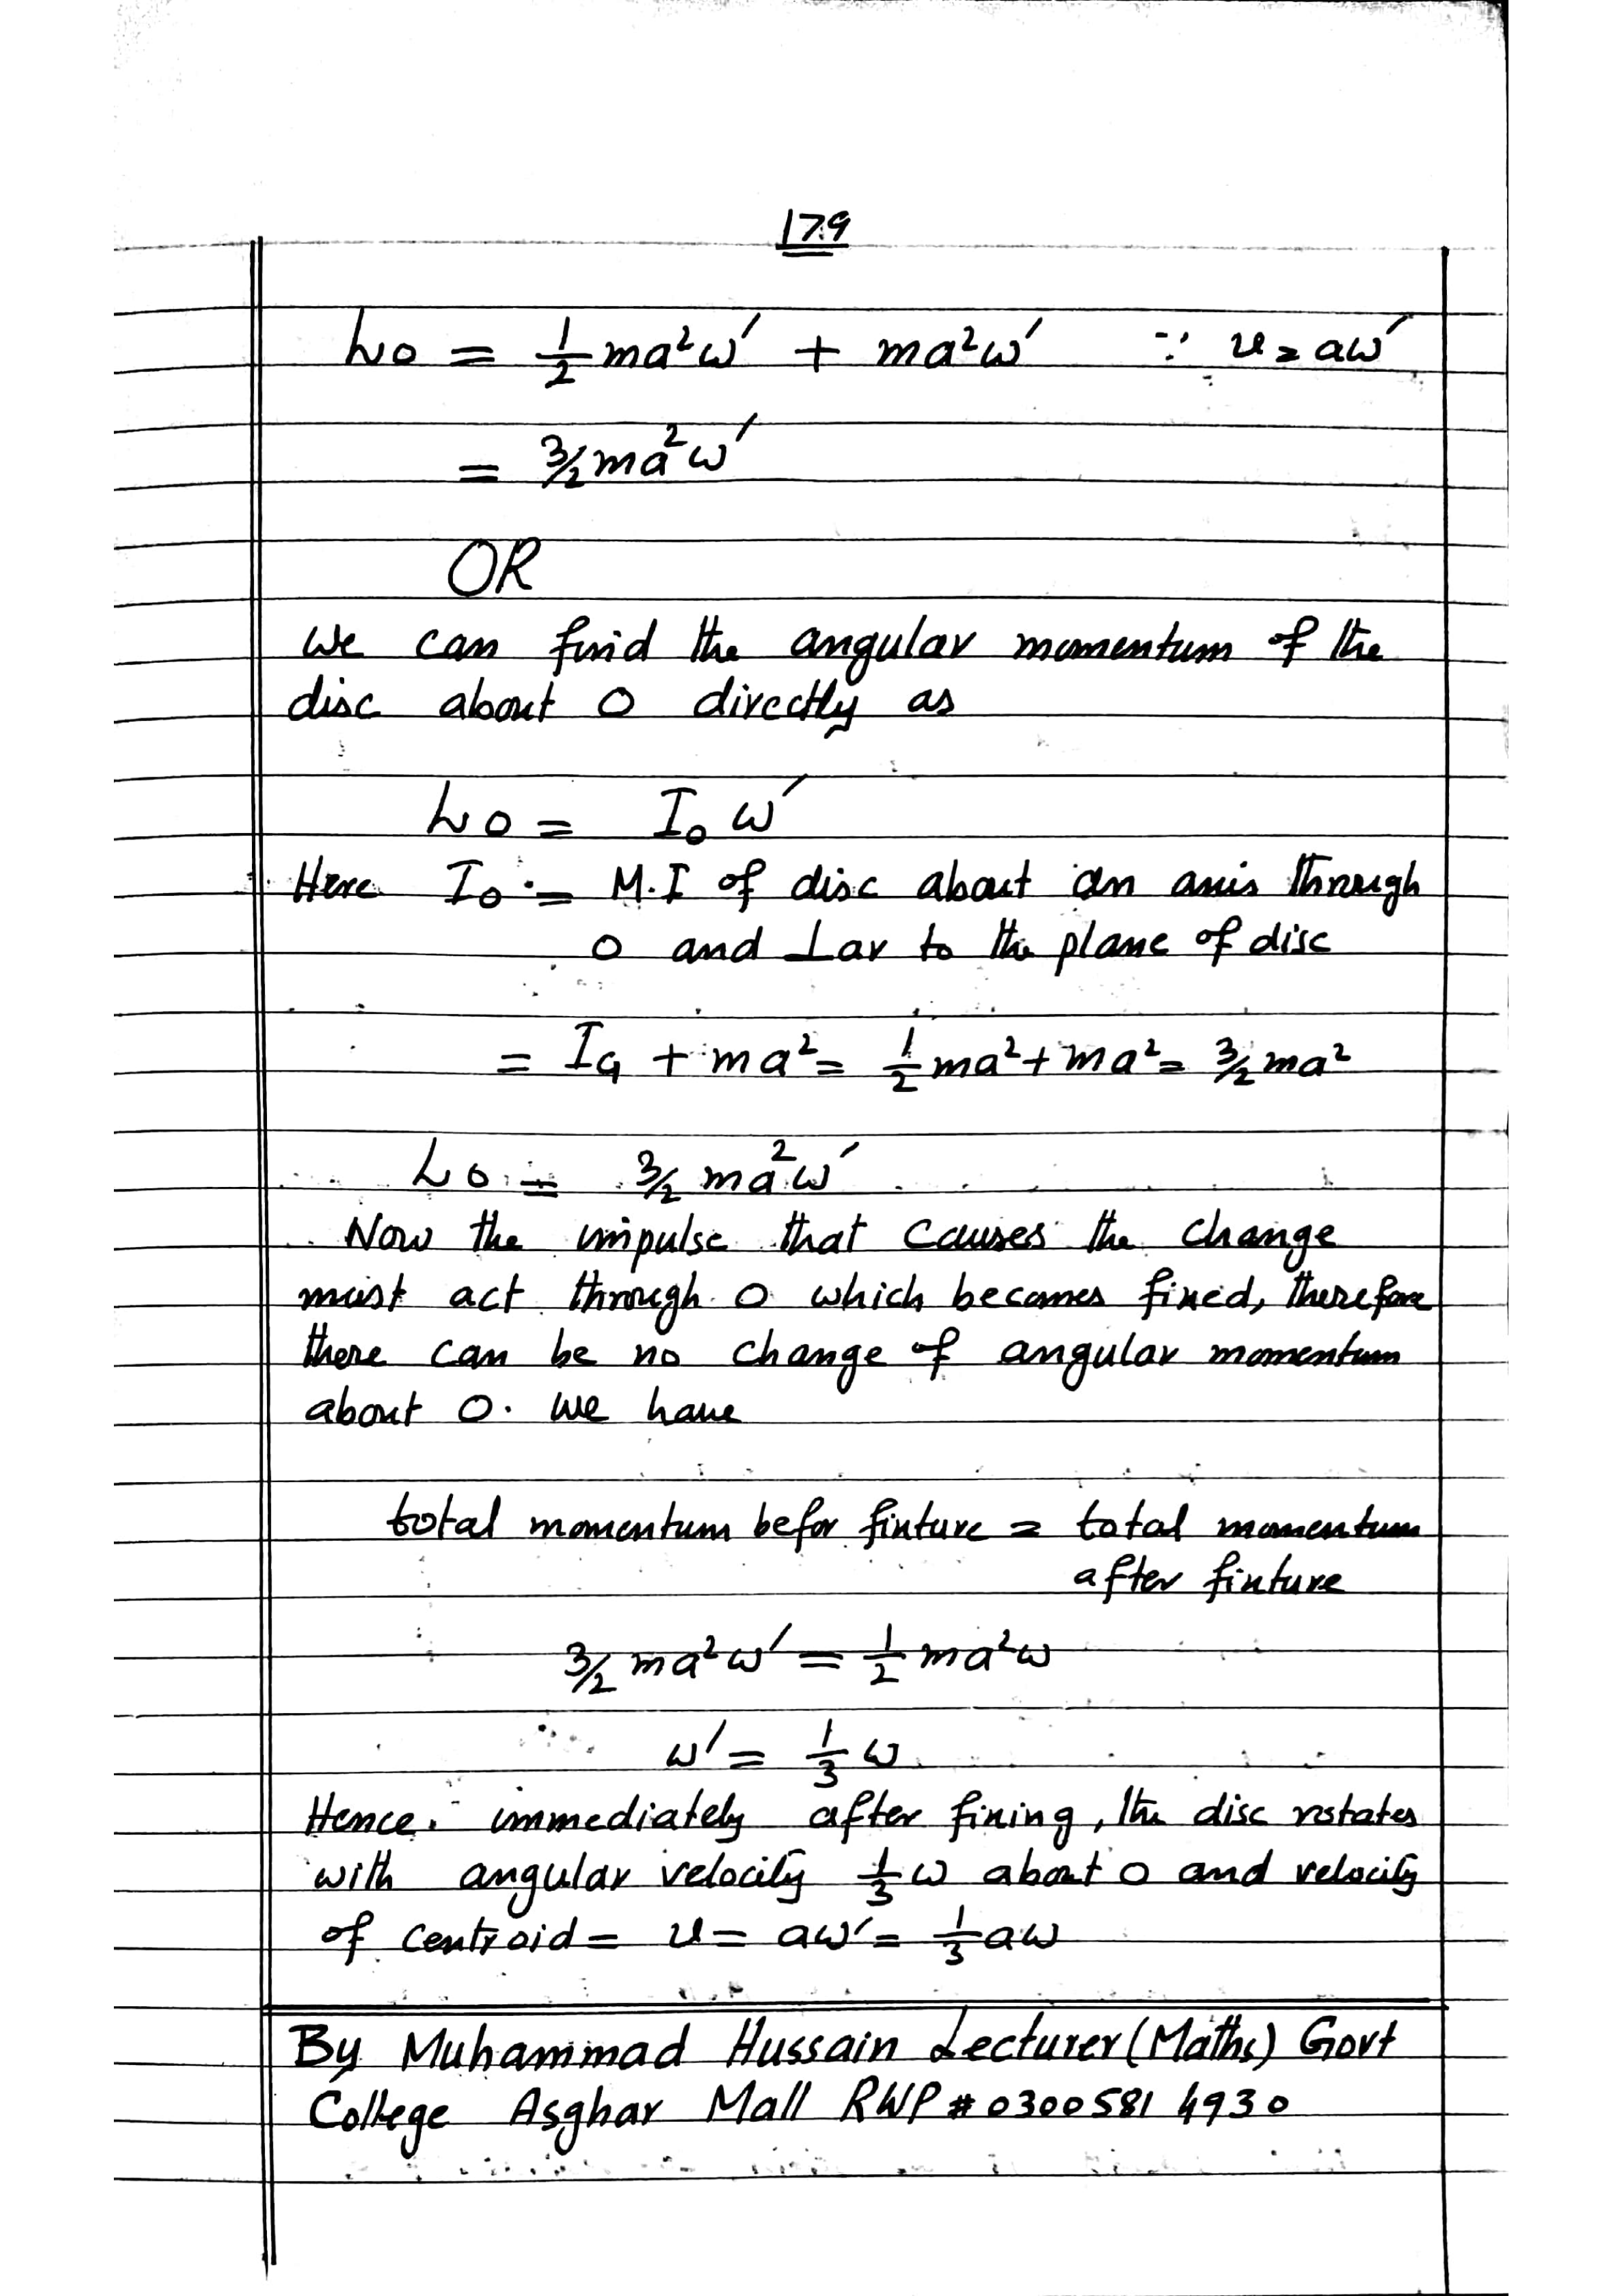 179
L₀ = 1/2 ma²ω′ + ma²ω′ ∵ v = aω′
= 3/2 ma²ω′
OR
We can find the angular momentum of the
disc about O directly as
L₀ = I₀ ω′
Here I₀ = M.I of disc about an axis through
O and ⊥ar to the plane of disc
= I_G + ma² = 1/2 ma² + ma² = 3/2 ma²
L₀ = 3/2 ma²ω′
Now the impulse that causes the change
must act through O which becomes fixed, therefore
there can be no change of angular momentum
about O. We have
total momentum befor fixture = total momentum
after fixture
3/2 ma²ω′ = 1/2 ma²ω
ω′ = 1/3 ω
Hence. immediately after fixing, the disc rotates
with angular velocity 1/3 ω about O and velocity
of centroid = v = aω′ = 1/3 aω
By Muhammad Hussain Lecturer (Maths) Govt
College Asghar Mall RWP # 0300581 4930